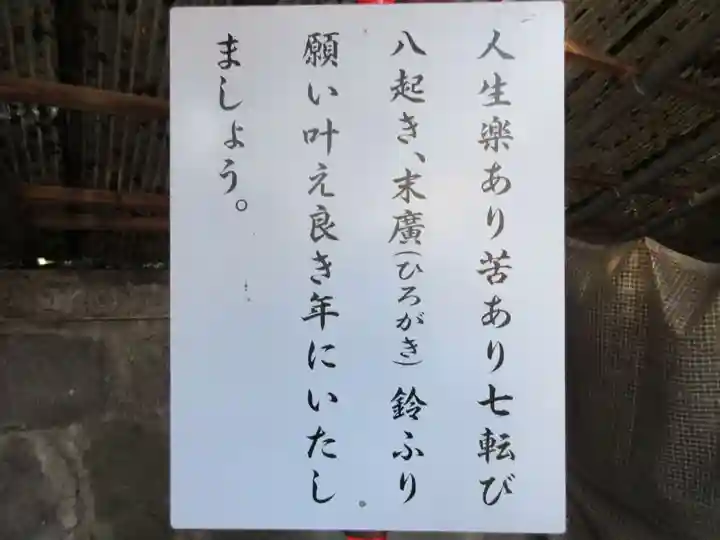 人生楽あり苦あり七転び
八起き、末廣(ひろがき)鈴ふり
願い叶え良き年にいたし
ましょう。